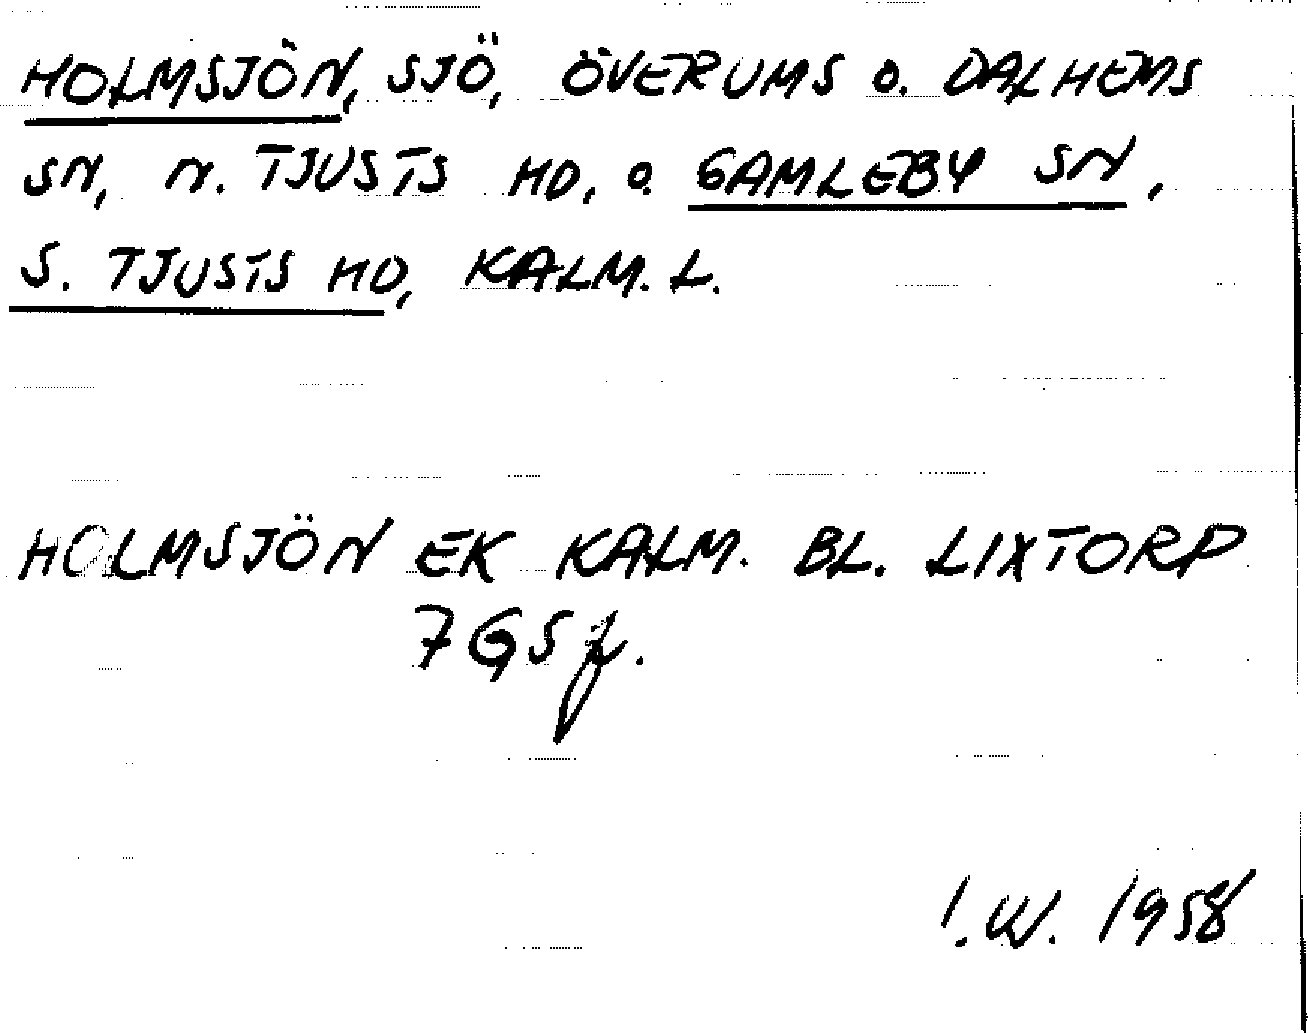 HOLMSJÖN, SJÖ, ÖVERUMS O. DALHEMS
SN, N. TJUSTS HD, O. GAMLEBY SN,
S. TJUSTS HD, KALM. L.
HOLMSJÖN EK KALM. BL. LIXTORP
7 G S f.
I.W. 1958